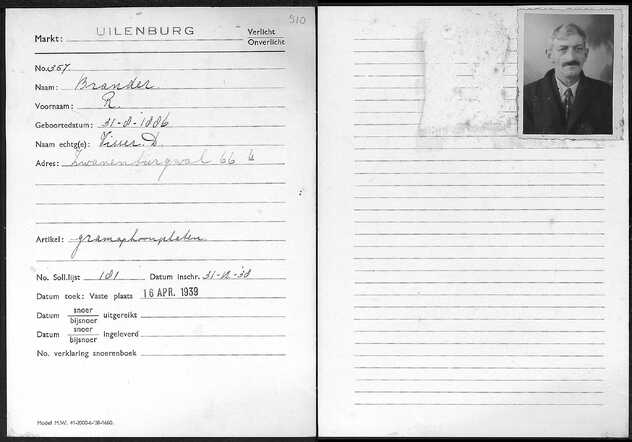 510
Markt: UILENBURG Verlicht
Onverlicht
No. 367
Naam: Brander
Voornaam: R.
Geboortedatum: 31-8-1886
Naam echtg(e): D.
Adres: Zwanenburgwal 66
Artikel: gramaphoonplaten
No. Soll.lijst 181 Datum inschr. 31-12-38
Datum toek: Vaste plaats 16 APR. 1939
Datum snoer uitgereikt
bijsnoer
Datum snoer ingeleverd
bijsnoer
No. verklaring snoerenboek
Model M.W.